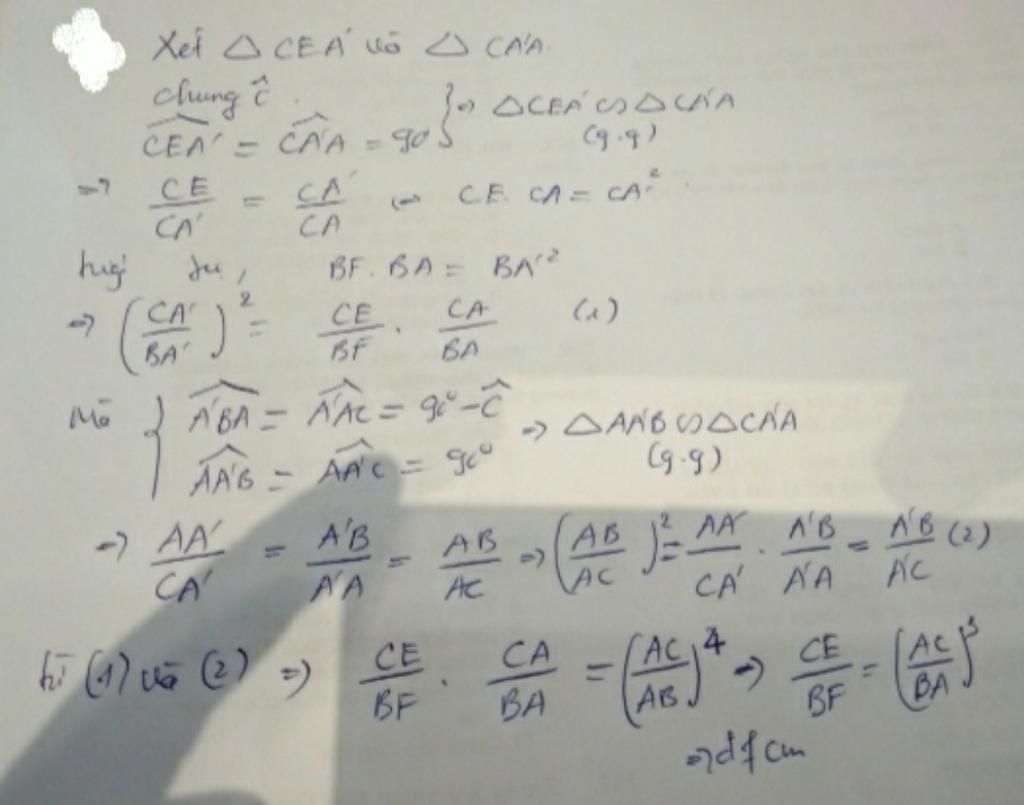 Xét △ CEA' và △ CA'A
chung Ĉ.
CEA' = CA'A = 90 } => △CEA' ∽ △CA'A
(g.g)
=> CE/CA' = CA'/CA <=> CE. CA = CA'²
tự, BF. BA = BA'²
=> (CA'/BA')² = CE/BF . CA/BA (1)
Mà { A'BA = A'AC = 90° - Ĉ
AA'B = AA'C = 90° => △AA'B ∽ △CA'A
(g.g)
=> AA'/CA' = A'B/A'A = AB/AC => (AB/AC)² = AA'/CA' . A'B/A'A = A'B/A'C (2)
từ (1) và (2) => CE/BF . CA/BA = (AC/AB)⁴ => CE/BF = (AC/BA)³
=> đfcm